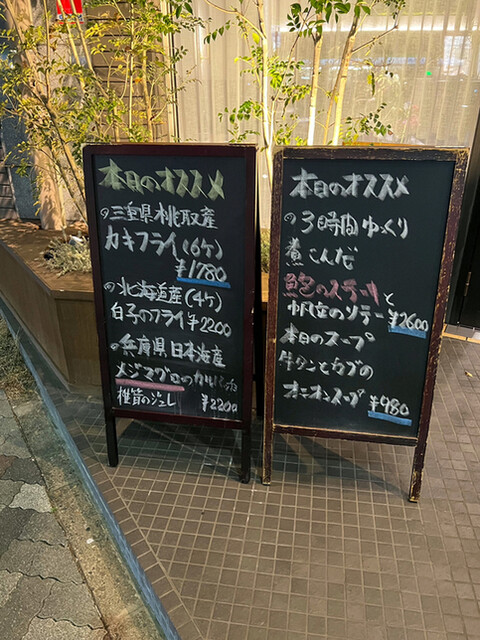 本日のオススメ
三重県桃取産
カキフライ(6ケ)
¥1780
北海道産(4ケ)
白子のフライ ¥2200
兵庫県日本海産
メジマグロのカルパッチョ
椎茸のジュレ ¥2200
本日のオススメ
3時間ゆっくり
煮こんだ
鮑のステーキと
帆立のソテー ¥2600
本日のスープ
牛タンとカブの
オニオンスープ ¥980